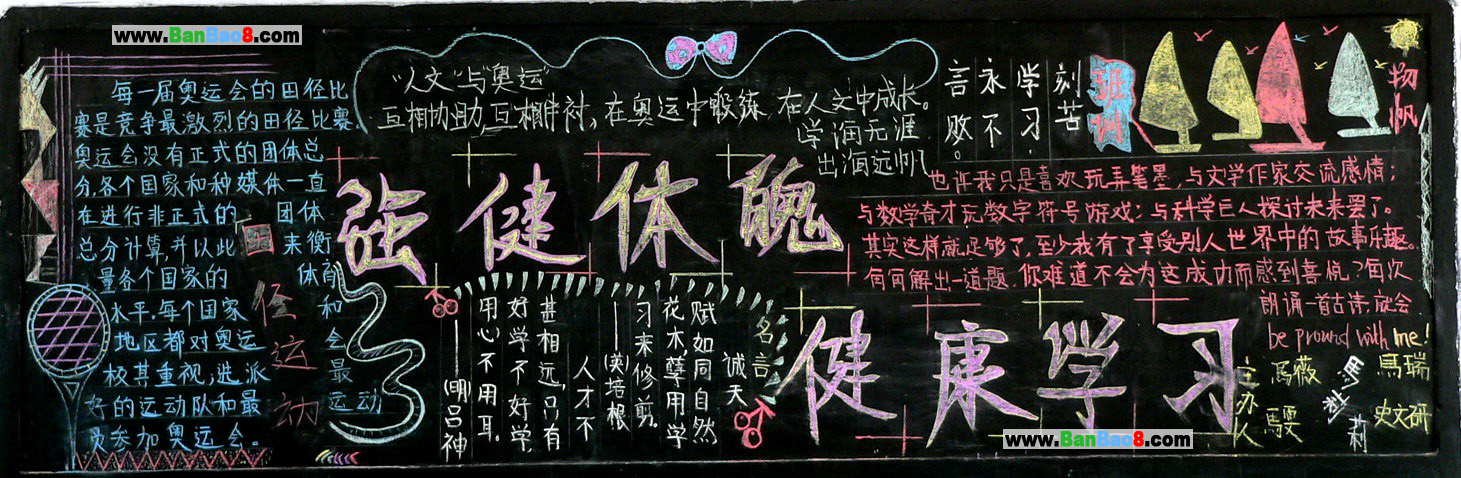 www.BanBao8.com
每一届奥运会的田径比
赛是竞争最激烈的田径比赛.
奥运会没有正式的团体总
分,各个国家和种媒体一直
在进行非正式的团体
总分计算,并以此来衡
量各个国家的体育
水平.每个国家和
地区都对奥运会
极其重视,选派最
好的运动队和最
员参加奥运会。
运动
田
径
运
动
"人文"与"奥运"
互相协助,互相衬,在奥运中锻练,在人文中成长。
学海无涯
出海远帆
刻苦
学习,
永不
言败。
班训
扬帆
强健体魄
也许我只是喜欢玩弄笔墨,与文学作家交流感情;
与数学奇才玩数字符号游戏;与科学巨人探讨未来罢了。
其实这样就足够了,至少我有了享受别人世界中的故事乐趣。
每每解出一道题,你难道不会为这成功而感到喜悦?每次
朗诵一首古诗,就会
be pround with me!
名言
诚天
赋如同自然
花木,孽用学
习来修剪。
——(英)培根
人才不
甚相远,只有
好学不好学,
用心不用耳。
——(明)吕神
健康学习
主办人
馬薇
馬瑞
史文研
莉
www.BanBao8.com